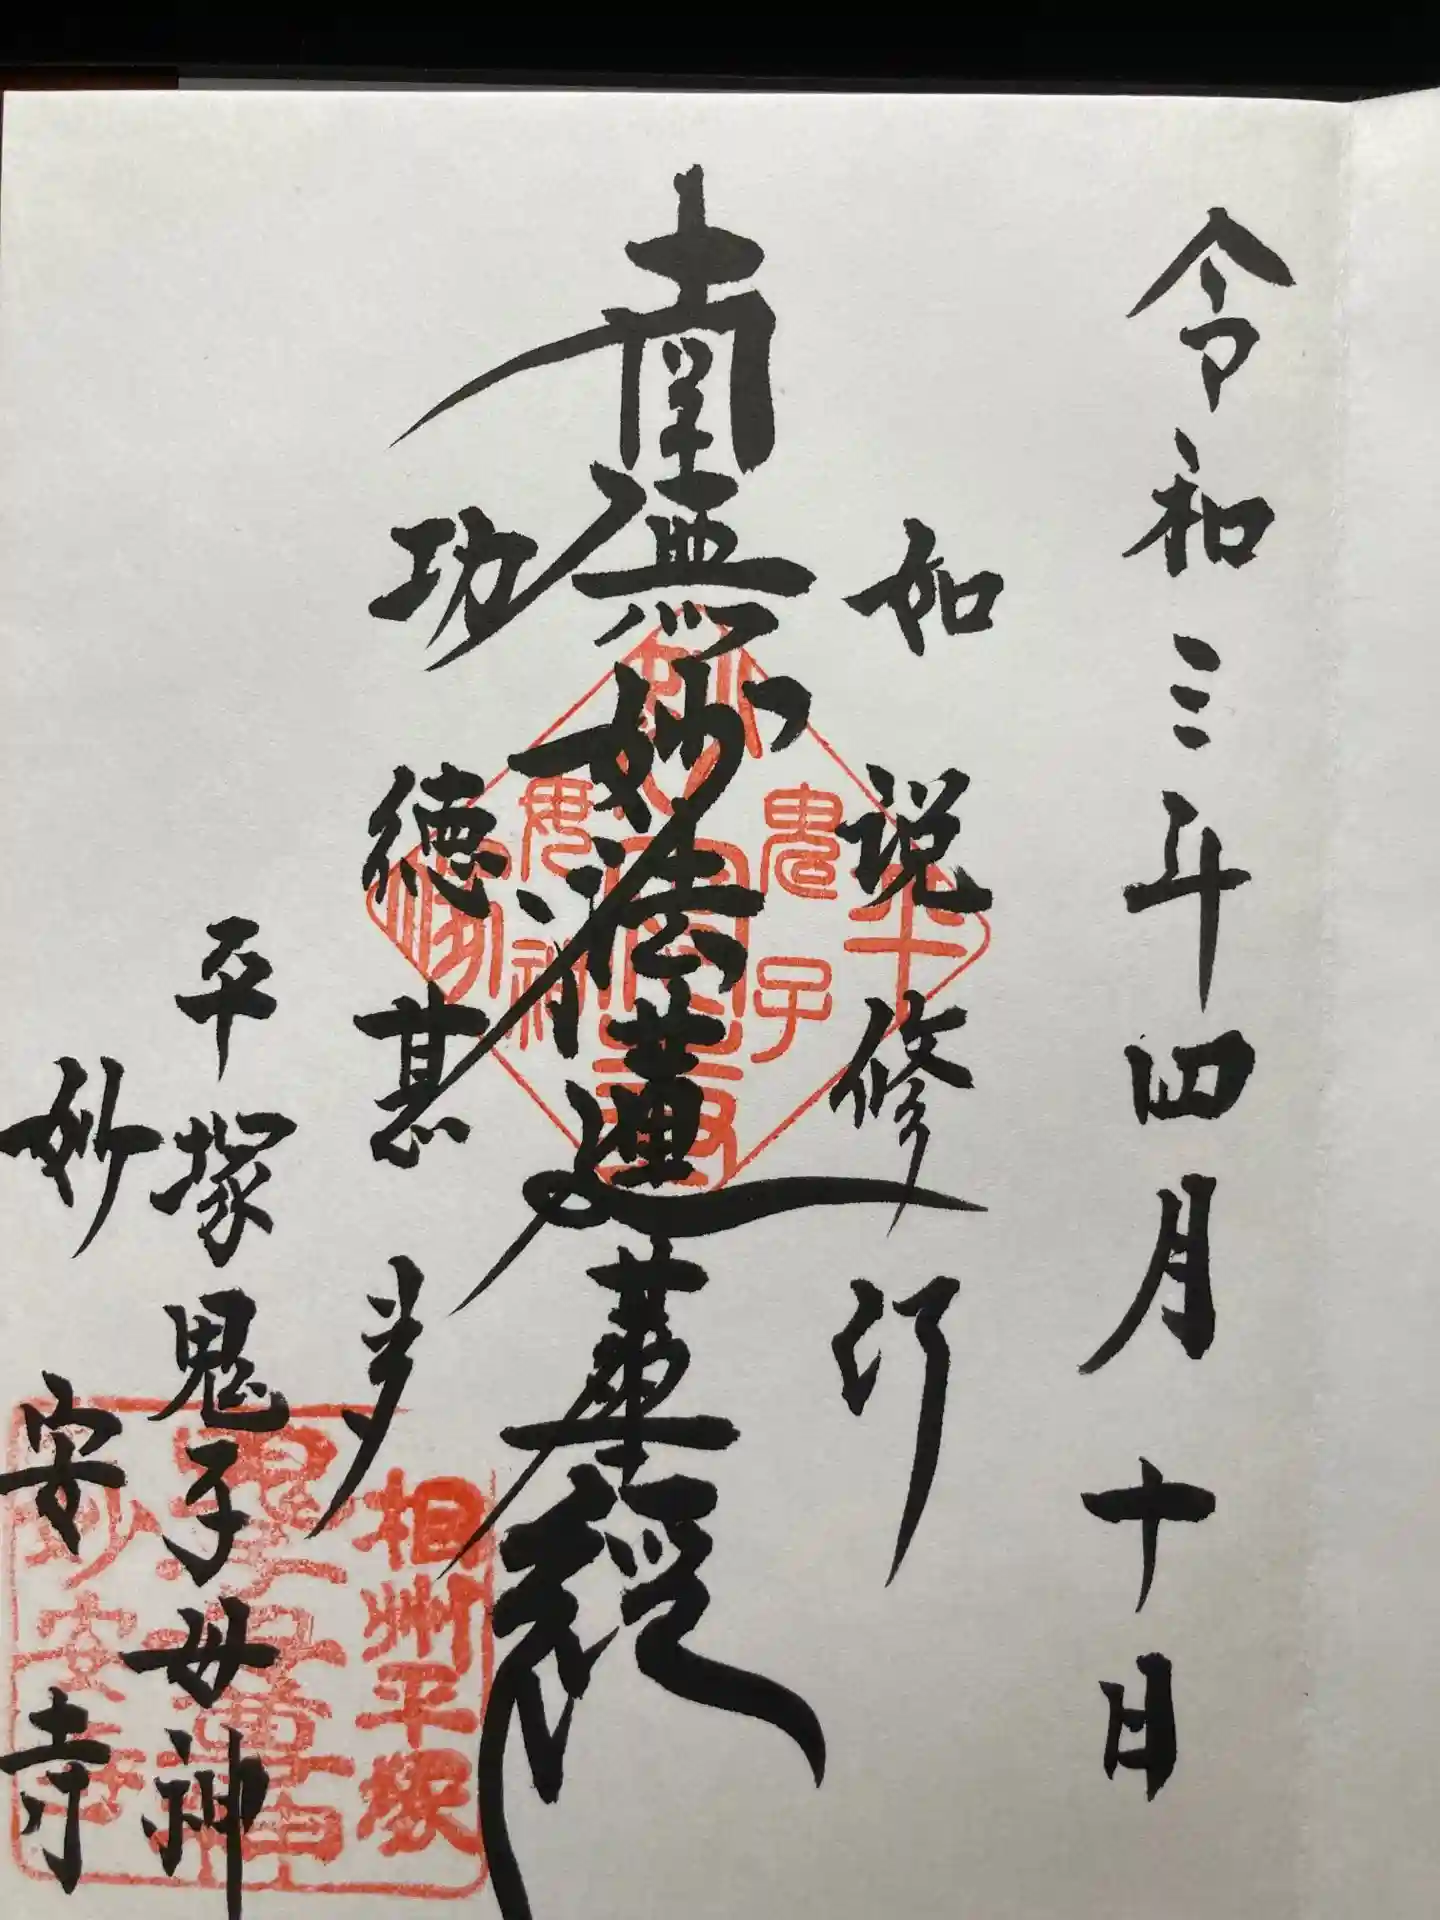 令和三年四月十日
如説修行
南無妙法蓮華経
功徳甚多
平塚鬼子母神
妙安寺
平
鬼子
妙安寺
母神
塚
相州平塚
鬼子母尊神
妙安寺